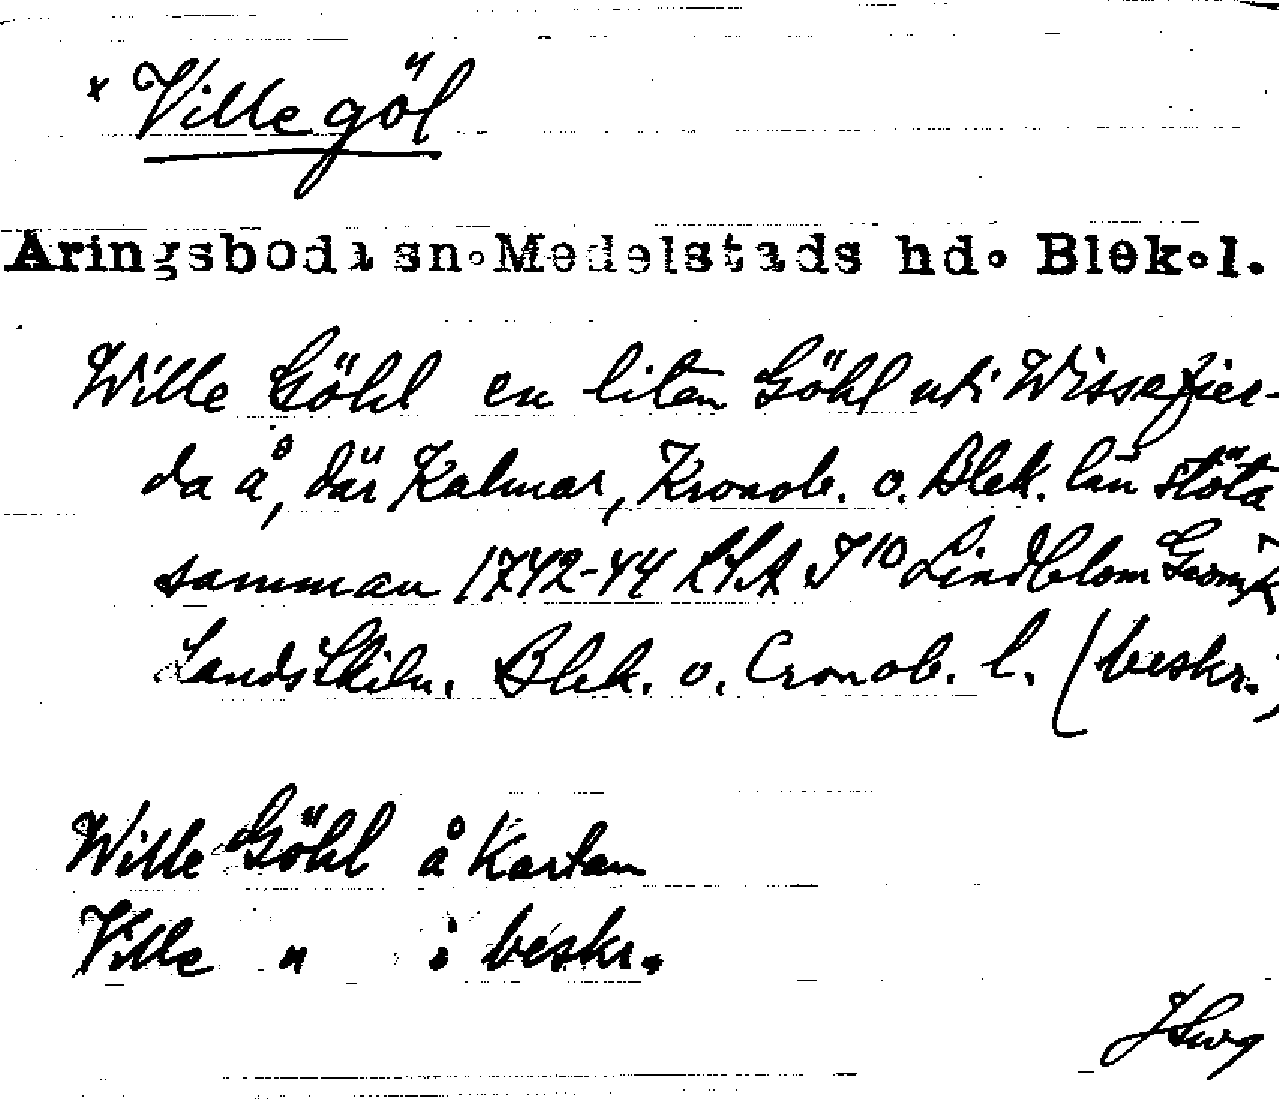 * Ville göl
Aringsboda sn. Medelstads hd. Blek.l.
Wille Göhl en liten Göhl uti Wissefier-
da å, där Kalmar, Kronob. o. Blek. län stöta
samman 1742-44 LSA I 10 Lindblom
Landskiln. Blek. o. Cronob. l. (beskr.)
Wille Göhl å Kartan
Ville " i beskr.